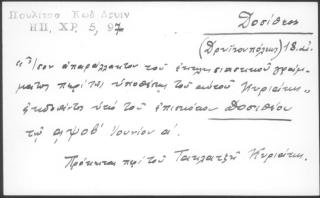 Πουλίτσα Κωδ Δρυιν
ΗΠ, ΧΡ, 5, 97
Δοσίθεος
(Δρυϊνουπόλεως) 18. αἰ.
"Ἴσον ἀπαράλλακτον τοῦ ἐκκλησιαστικοῦ γράμ-
ματος περί τῆς ὑποθέσεως τοῦ αὐτοῦ Κυριάκη"
ἐκδοθέντος ὑπό τοῦ ἐπισκόπου Δοσιθέου
τῷ αψοβ' Ἰουνίου α'.
Πρόκειται περί τοῦ Κυριάκη.